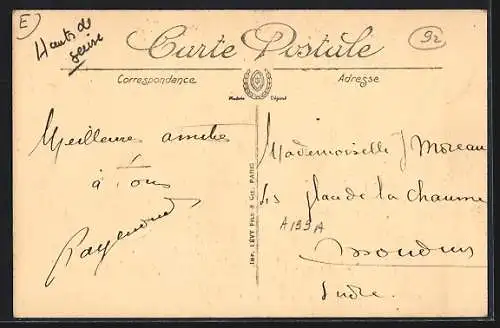 E
Hauts de
Seine
92
Carte Postale
Correspondance
Adresse
Modèle Déposé
Meilleures amitiés
à Tous
Raymond
Imp. LÉVY Fils & Cie, PARIS
Mademoiselle J Moreau
de la Chaume
A199A
Indre.